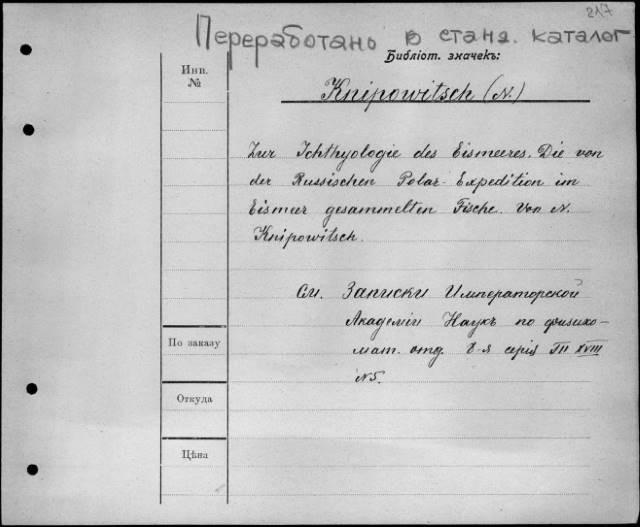 217
Переработано в станд. каталог
Библіот. значекъ:
Инв.
№
Knipowitsch (N.)
Zur Ichthyologie des Eismeeres. Die von
der Russischen Polar-Expedition im
Eismeer gesammelten Fische. Von N.
Knipowitsch.
См. Записки Императорской
Академіи Наукъ по физико-
мат. отд. 8-я серія Т. XVIII
№5.
По заказу
Откуда
Цѣна